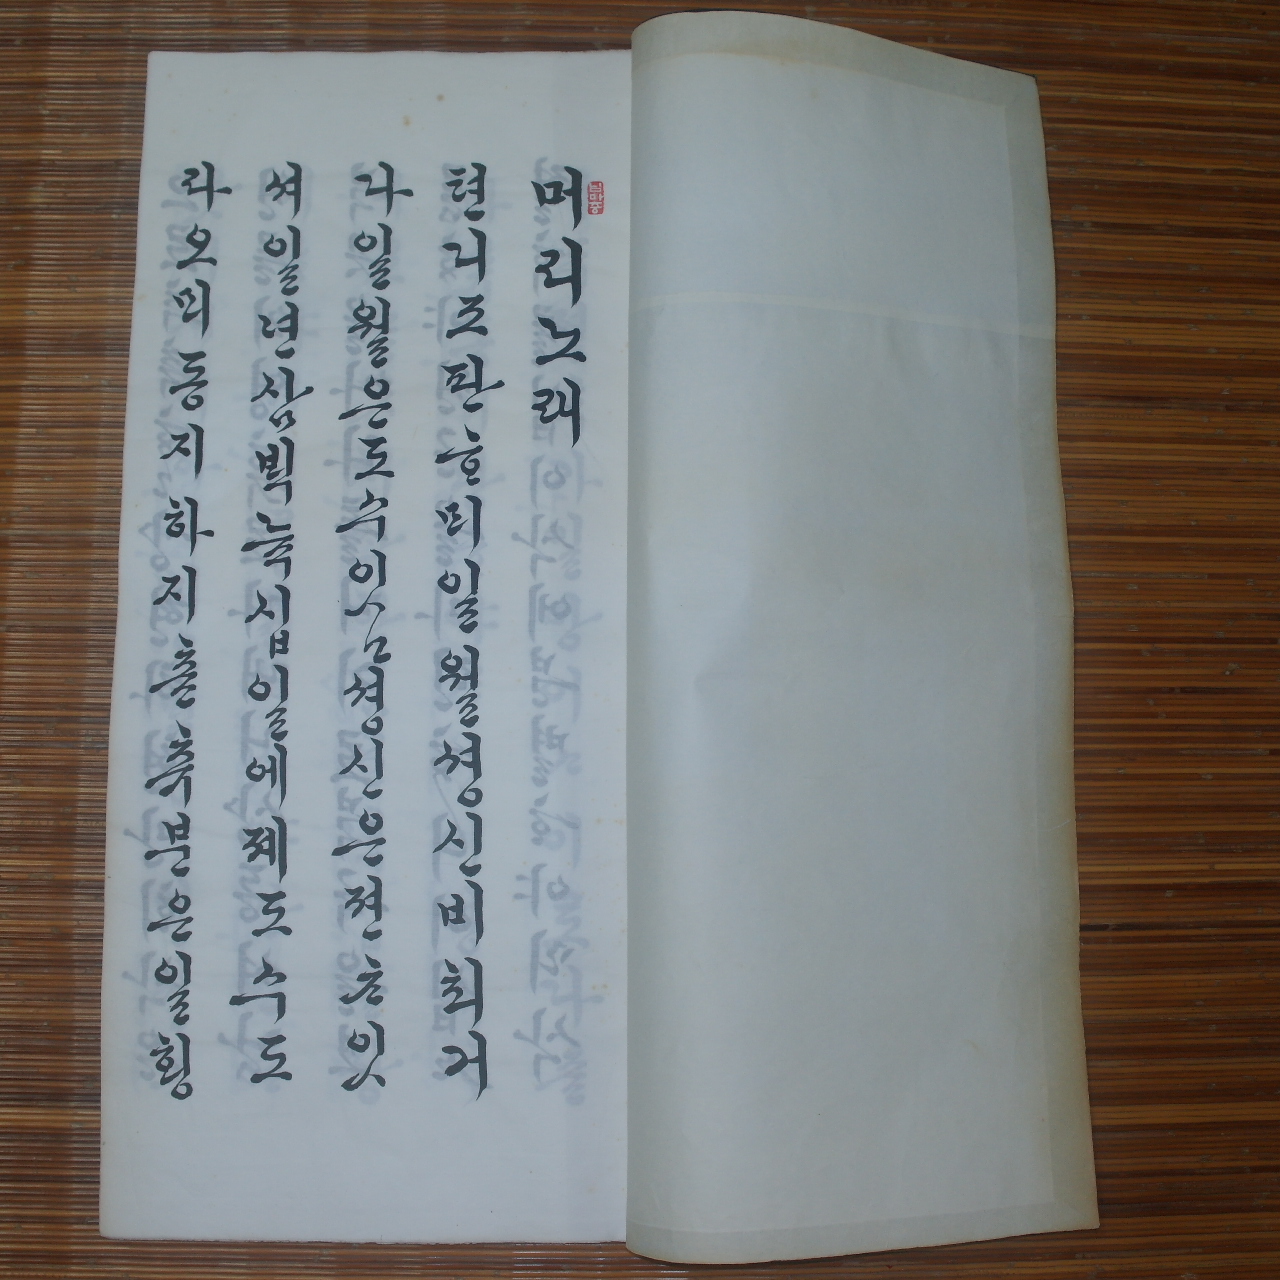 머리노래
텬디조판호ᄆᆡ일월셩신비최거
다일월은도수잇 셩신은젼ᄎᆞ잇
셔일년삼ᄇᆡᆨ뉵십일에졔도수도
라오ᄆᆡ동지하지츈츄분은일횡